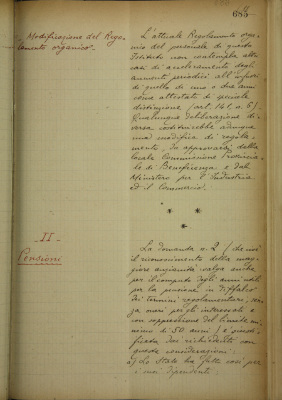 683
Modificazione del Rego-
lamento organico.
L'attuale Regolamento orga-
nico del personale di questo
Istituto non contempla altri
casi di acceleramento degli
aumenti periodici all'infuori
di quello di uno o due anni
come attestato di speciale
distinzione (art. 141, a. 6).
Qualunque deliberazione di-
versa costituirebbe dunque
una modifica di regola-
mento, da approvarsi dalla
locale Commissione Provincia-
le di Beneficenza e dal
Ministero per l'Industria
ed il Commercio.
* * *
II
Pensioni
La domanda n. 2 (
il riconoscimento della mag-
giore anzianità valga anche
per il computo degli anni utili
per la pensione in
dei termini regolamentari, sen-
za oneri per gli interessati e
con soppressione del limite mi-
nimo di 50 anni) è giusti-
ficata dai richiedenti con
queste considerazioni:
a) Lo Stato ha fatto così per
i suoi dipendenti.